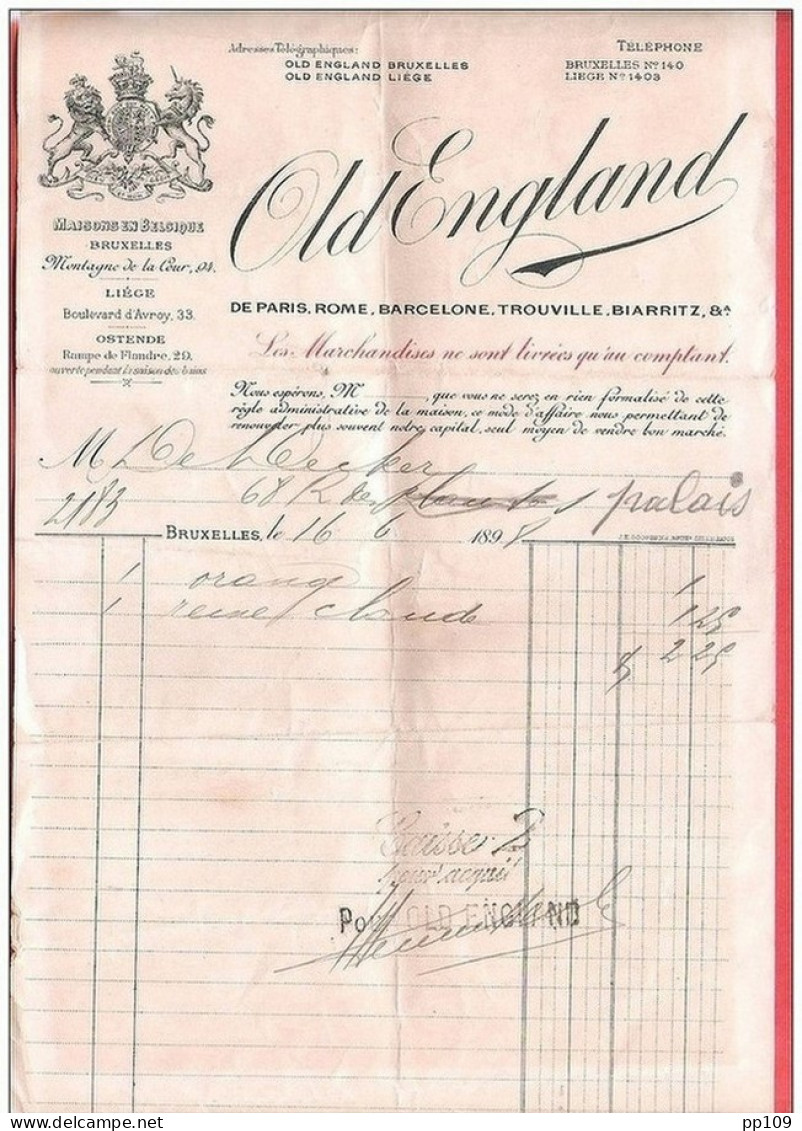 Adresses Télégraphiques:
OLD ENGLAND BRUXELLES
OLD ENGLAND LIÉGE
TÉLÉPHONE
BRUXELLES Nº 140
LIEGE Nº 1403
Old England
MAISONS EN BELGIQUE
BRUXELLES
Montagne de la Cour, 94.
LIÉGE
Boulevard d'Avroy, 33.
OSTENDE
Rampe de Flandre, 29.
ouverte pendant la saison des bains
DE PARIS, ROME, BARCELONE, TROUVILLE, BIARRITZ, &ª
Les Marchandises ne sont livrées qu'au comptant.
Nous espérons, M , que vous ne serez en rien formalisé de cette
règle administrative de la maison, ce mode d'affaire nous permettant de
renouveler plus souvent notre capital, seul moyen de vendre bon marché.
M De Decker
68 R des palais
2183
BRUXELLES, le 16 6 1898
1 orange 1
1 reine claude 1 25
2 25
Caisse 2
pour acquit
POUR OLD ENGLAND
pp109